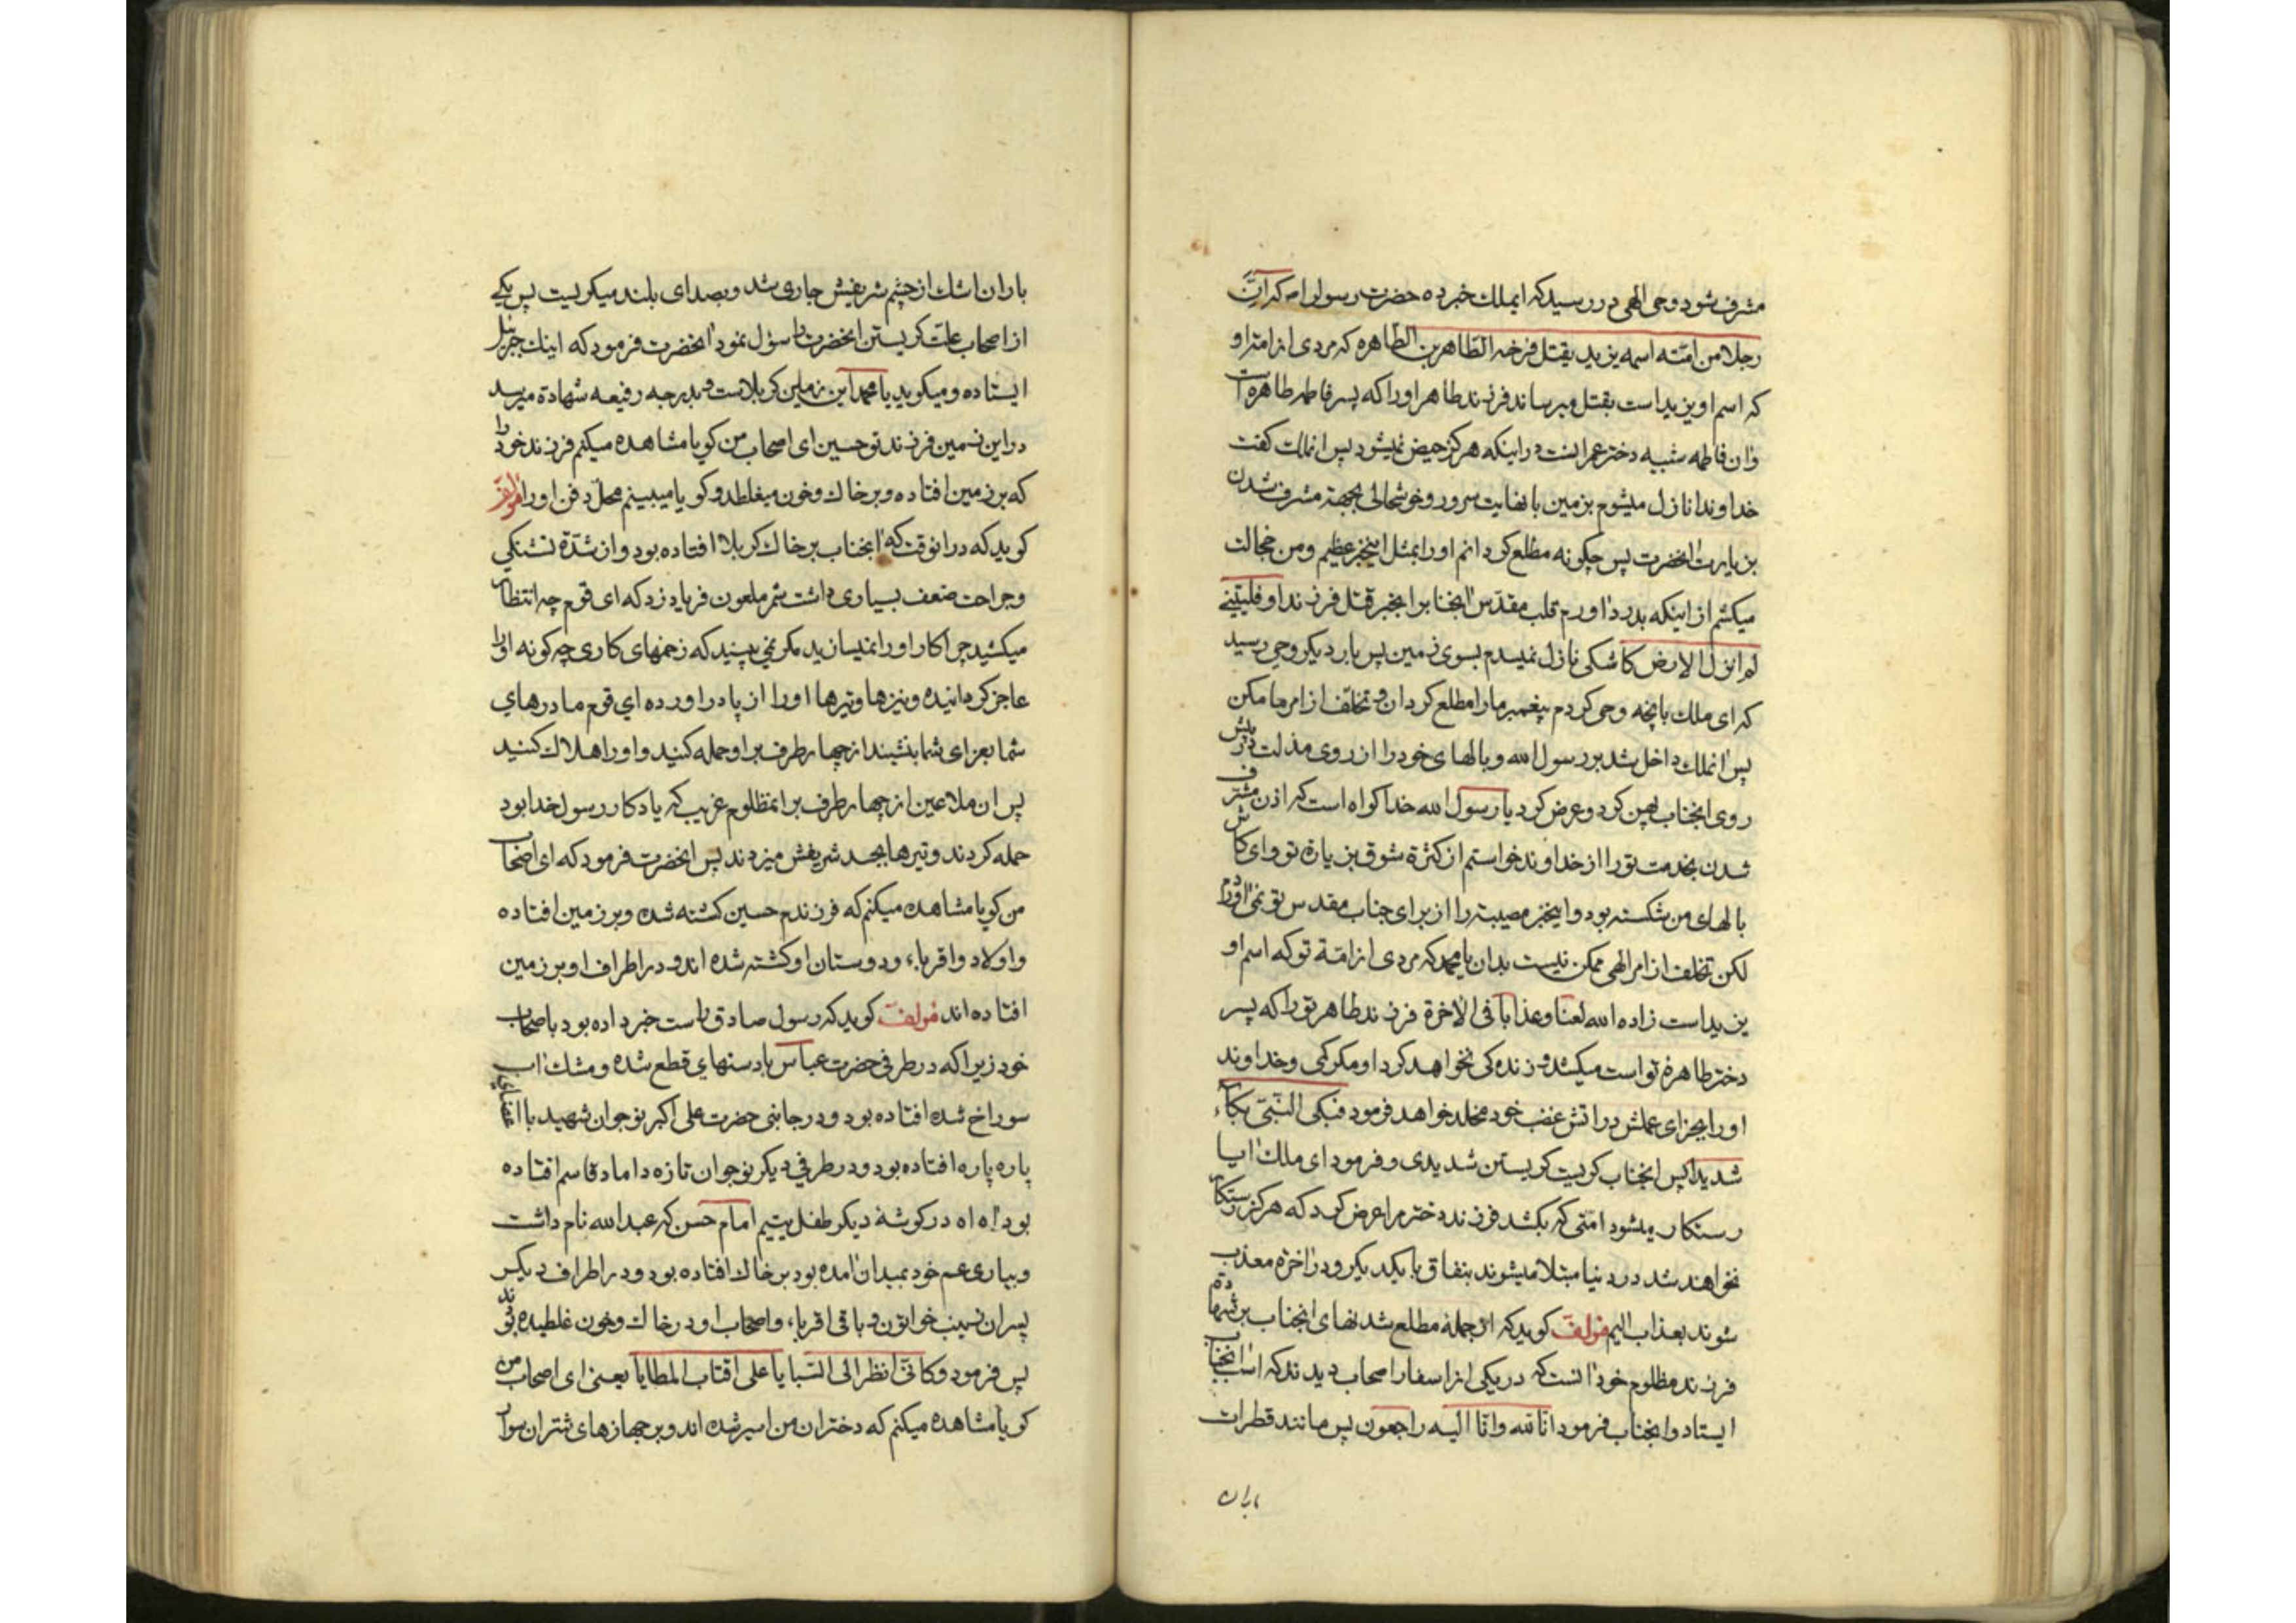 مشرف شود وحی الهی در رسید که ایملک خبر ده حضرت رسول را که انّ
رجلا من امّته اسمه یزید یقتل فرخه الطّاهر بن الطّاهره که مردی از امّت او
که اسم او یزید است بقتل میرساند فرزند طاهر او را که پسر فاطمه طاهره است
وان فاطمه شبیه دختر عمرانست در اینکه هرکز حیض نمیشود پس انملک کفت
خداوندا نازل میشوم بزمین با نهایت سرور و خوشحالی بجهة مشرف شدن
بزیارت انحضرت پس چکونه مطلع کردانم او را بمثل اینخبر عظیم ومن خجالت
میکشم از اینکه بدرد اورم قلب مقدّس انجنابرا بخبر قتل فرزند او فلیتنی
لم انزل الارض کاشکی نازل نمیشدم بسوی زمین پس بار دیکر وحی رسید
که ای ملک بانچه وحی کردم پیغمبر ما را مطلع کردان و تخلّف از امر ما مکن
پس انملک داخل شد بر رسول الله و بالهای خود را از روی مذلت در پیش
روی انجناب پهن کرد و عرض کرد یا رسول الله خدا کواه است که اذن مشرف
شدن بخدمت تو را از خداوند خواستم از کثرة شوق بزیارة تو وای کاش
بالهای من شکسته بود و اینخبر مصیبت را از برای جناب مقدس تو نمی اوردم
لکن تخلف از امر الهی ممکن نیست بدان یا محمد که مردی از امّة تو که اسم او
یزید است زاده الله لعنًا وعذابًا فی الاخرة فرزند طاهر تو را که پسر
دختر طاهرهٔ تو است میکشد و زنده کی نخواهد کرد او مکر کمی و خداوند
او را بجزای عملش در اتش غضب خود مخلد خواهد فرمود فبکی النّبیّ بکآء
شدیدا پس انجناب کریست کریستن شدیدی و فرمود ای ملک ایا
رستکار میشود امّتی که بکشد فرزند دختر مرا عرض کرد که هرکز رستکار
نخواهند شد در دنیا مبتلا میشوند بنفاق با یکدیکر و در اخرة معذب
شوند بعذاب الیم مولف کوید که از جمله مطلع شدنهای انجناب بر شهادة
فرزند مظلوم خود انست که در یکی از اسفار اصحاب دیدند که اسب انجناب
ایستاد و انجناب فرمود انّا لله وانّا الیه راجعون پس مانند قطرات
باران
باران اشک از چشم شریفش جاری شد و بصدای بلند میکریست پس یکی
از اصحاب علت کریستن انحضرت را سؤل نمود انحضرت فرمود که اینک جبرئیل
ایستاده و میکوید یا محمد این زمین کربلاست و بدرجه رفیعه شهادة میرسد
در این زمین فرزند تو حسین ای اصحاب من کویا مشاهده میکنم فرزند خود را
که بر زمین افتاده و بر خاک و خون میغلطد و کویا میبینم محلّ دفن او را مؤلف
کوید که در انوقت که انجناب بر خاک کربلا افتاده بود و از شدّة تشنکی
و جراحت ضعف بسیاری داشت شمر ملعون فریاد زد که ای قوم چه انتظار
میکشید چرا کار او را نمیسازید مکر نمی بینید که زخمهای کاری چه کونه او را
عاجز کردانیده و نیزها و تیرها او را از پا در اورده ای قوم مادرهای
شما بعزای شما بنشیند از چهار طرف بر او حمله کنید و او را هلاک کنید
پس ان ملاعین از چهار طرف بر انمظلوم غریب که یادکار رسول خدا بود
حمله کردند و تیرها بجسد شریفش میزدند پس انحضرت فرمود که ای اصحاب
من کویا مشاهده میکنم که فرزندم حسین کشته شده و بر زمین افتاده
و اولاد و اقرباء و دوستان او کشته شده اند و در اطراف او بر زمین
افتاده اند مولف کوید که رسول صادق راست خبر داده بود باصحاب
خود زیرا که در طرفی حضرت عباس با دستهای قطع شده و مشک اب
سوراخ شده افتاده بود و در جانبی حضرت علی اکبر نوجوان شهید با اعضای
پاره پاره افتاده بود و در طرفی دیکر نوجوان تازه داماد قاسم افتاده
بود اه اه در کوشهٔ دیکر طفل یتیم امام حسن که عبد الله نام داشت
و بیاری عم خود بمیدان امده بود بر خاک افتاده بود و در اطراف دیکر
پسران زینب خواتون و باقی اقرباء و اصحاب او در خاک و خون غلطیده بودند
پس فرمود و کانّی انظر الی السّبایا علی اقتاب المطایا یعنی ای اصحاب من
کویا مشاهده میکنم که دختران من اسیر شده اند و بر جهازهای شتران سوار